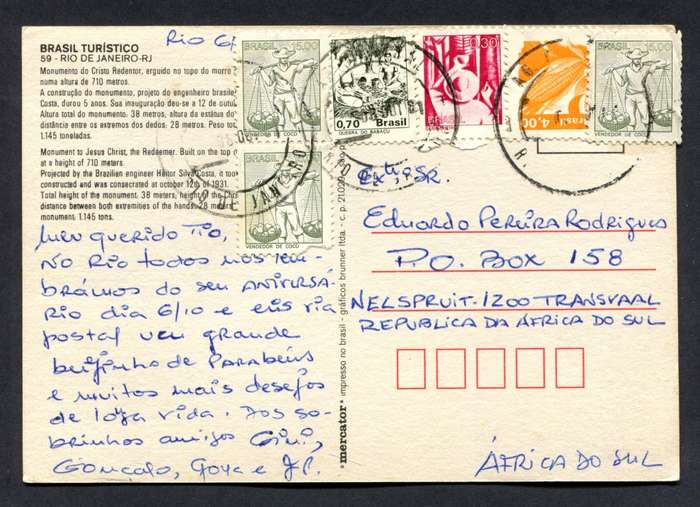 BRASIL TURÍSTICO
59 - RIO DE JANEIRO-RJ
Monumento do Cristo Redentor, erguido no topo do morro
numa altura de 710 metros.
A construção do monumento, projeto do engenheiro brasile
Costa, durou 5 anos. Sua inauguração deu-se a 12 de outu
Altura total do monumento: 38 metros, altura da estátua do
distância entre os extremos dos dedos: 28 metros. Peso tot
1.145 toneladas.
Monument to Jesus Christ, the Redeemer. Built on the top o
at a height of 710 meters.
Projected by the Brazilian engineer Heitor Silva Costa, it took
constructed and was consecrated at october 12th of 1931.
Total height of the monument: 38 meters, height of the Chri
distance between both extremities of the hands: 28 meters
monument: 1.145 tons.
Rio 6/
Meu querido Tio,
No Rio todos nos lem-
brámos do seu ANIVERSÁ-
RIO dia 6/10 e eis via
postal um grande
beijinho de Parabéns
e muitos mais desejos
de longa vida. Dos so-
brinhos amigos Gini,
Gonçalo, Goya e J.P.
BRASIL 15,00
VENDEDOR DE COCO
0,70 Brasil
QUEBRA DO BABAÇU
0,30
BRASIL
Brasil 4,00
BRASIL 15,00
VENDEDOR DE COCO
VENDEDOR DE COCO
RIO DE JANEIRO
mercator® impresso no brasil - gráficos brunner ltda. - c. p. 21.020
Exmo SR.
Eduardo Pereira Rodrigues
P.O. Box 158
NELSPRUIT-1200 TRANSVAAL
REPUBLICA DA ÁFRICA DO SUL
ÁFRICA DO SUL